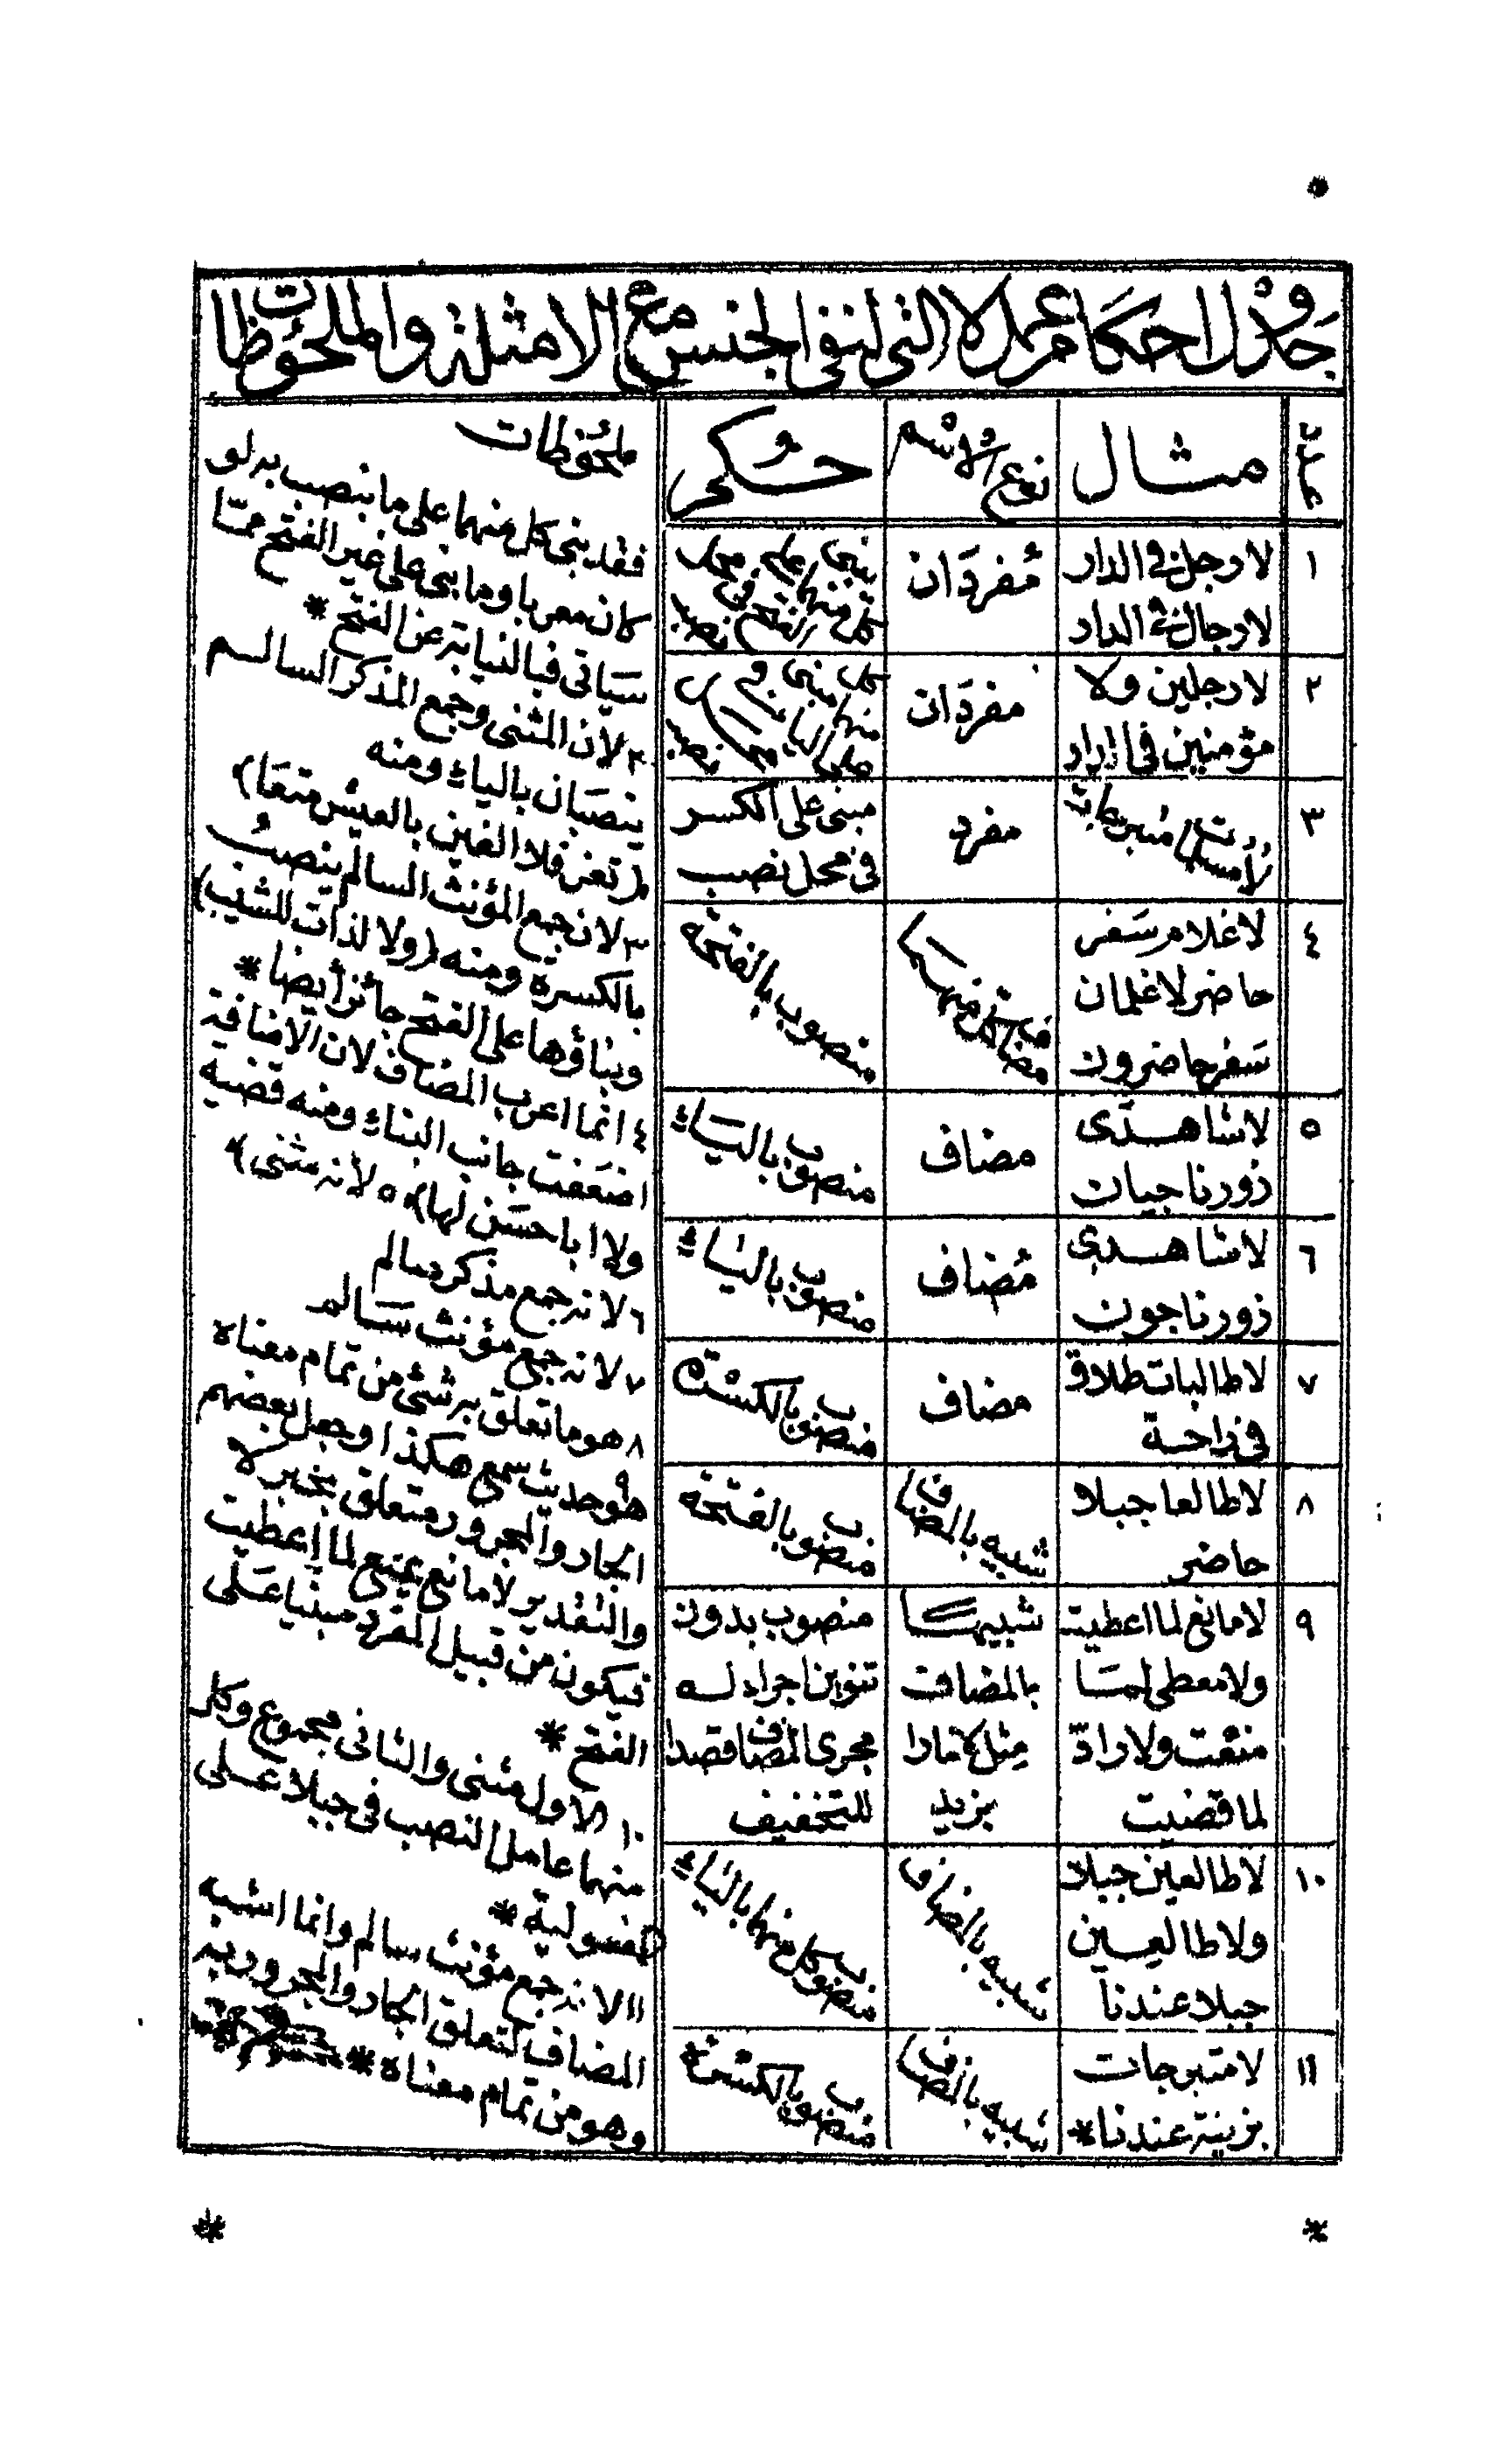 جدول احكام عمل لا التى لنفى الجنس مع الامثلة والملحوظات
عدد مثال نوع الاسم حكم ملحوظات
١ لا رجل فى الدار
لا رجال فى الدار
مفردان
بنى كل منهما على الفتح فى محل نصب
٢ لا رجلين ولا
مؤمنين فى الدار
مفردان
كل منهما مبنى على الياء فى محل نصب
٣ لا مسلمات
مفرد
مبنى على الكسر
فى محل نصب
٤ لا غلام سفر
حاضر لا غلمان
سفر حاضرون
كل منهما مضاف
منصوب بالفتحة
٥ لا شاهدى
زور ناجيان
مضاف
منصوب بالياء
٦ لا شاهدى
زور ناجون
مُضاف
منصوب بالياء
٧ لا طالبات طلاق
فى راحة
مضاف
منصوب بالكسرة
٨ لا طالعا جبلا
حاضر
شبيه بالمضاف
منصوب بالفتحة
٩ لا مانع لما اعطيت
ولا معطى لما
منعت ولا رادّ
لما قضيت
شبيه
بالمضاف
مثل لا مارا
بزيد
منصوب بدون
تنوين اجراء له
مجرى المضاف قصدا
للتخفيف
١٠ لا طالعين جبلا
ولا طالعين
جبلا عندنا
شبيه بالمضاف
منصوب كل منهما بالياء
١١ لا متبرجات
بزينة عندنا *
شبيه بالمضاف
منصوب بالكسرة
فقد بنى كل منهما على ما ينصب به لو
كان معربا وما بنى على غير الفتح ممّا
سيأتى فبالنيابة عن الفتح *
٢ لان المثنى وجمع المذكر السالم
ينصبان بالياء ومنه
(تعز فلا الفين بالعيش متعا)
٣ لان جمع المؤنث السالم ينصب
بالكسرة ومنه (ولا لذات للشيب)
وبناؤها على الفتح جائز أيضا *
٤ انما اعرب المضاف لان الاضافة
اضعفت جانب البناء ومنه قضية
ولا ابا حسن لها) ٥ لأنه مثنى)
٦ لانه جمع مذكر سالم
٧ لانه جمع مؤنث سالم
٨ هو ما تعلق به شئ من تمام معناه
٩ هو حديث سمع هكذا وجعل بعضهم
الجار والمجرور متعلق بخبر لا
والتقدير لا مانع يمنع لما اعطيت
فيكون من قبيل المفرد مبنيا على
الفتح *
١٠ الاول مثنى والثانى مجموع وكل
منهما عامل النصب فى جبلا على
المفعولية *
١١ لانه جمع مؤنث سالم وانما اشبه
المضاف لتعلق الجار والمجرور به
وهو من تمام معناه *